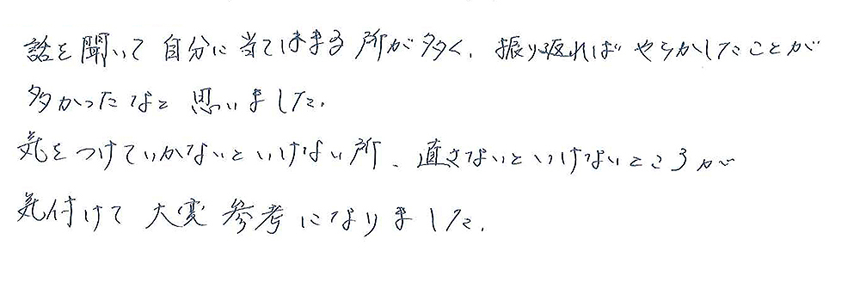 話を聞いて自分に当てはまる所が多く、振り返ればやらかしたことが
多かったなと思いました。
気をつけていかないといけない所、直さないといけないところが
気付けて大変参考になりました。